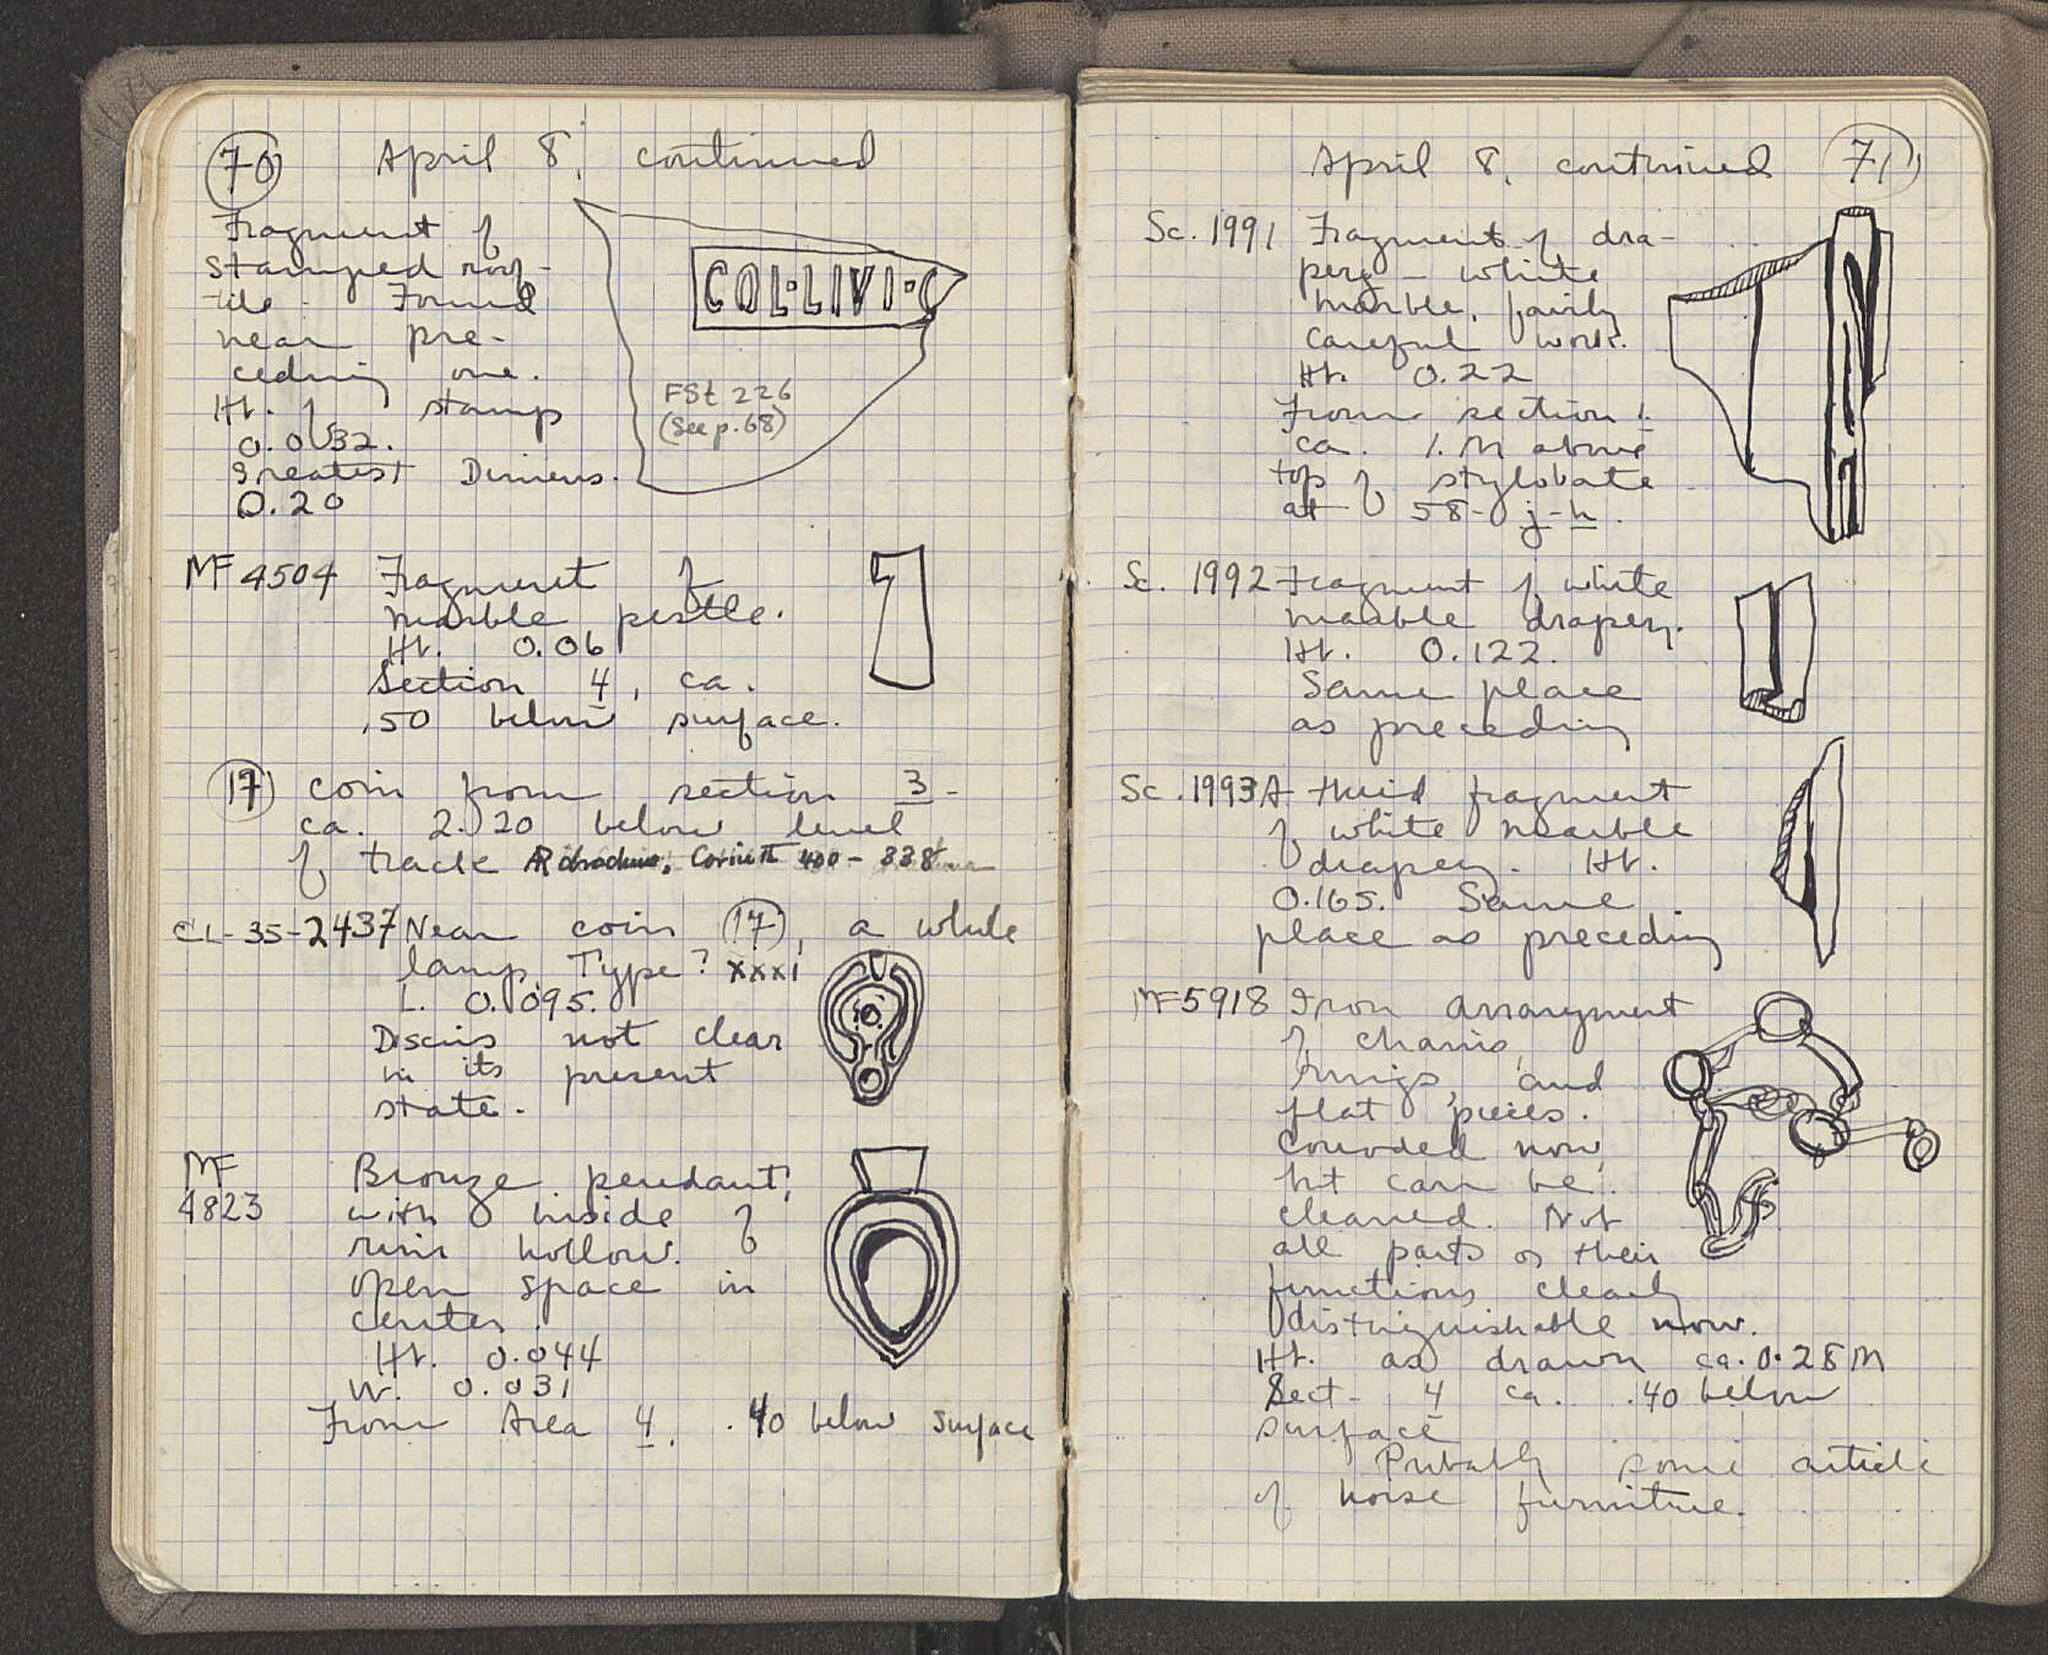 70 April 8, continued
Fragment of
stamped roof-
tile. Found
near pre-
ceding one.
Ht. of stamp
0.032.
greatest Dimens.
0.20
COL·LIVI·C
FSt 226
(See p. 68)
MF 4504 Fragment of
marble pestle.
Ht. 0.06
Section 4, ca.
.50 below surface.
17 coin from section 3-
ca. 2.20 below level
of track AR drachma, Corinth 400-338
CL-35-2437 Near coin 17, a whole
lamp. Type? XXXI
L. 0.095.
Discus not clear
in its present
state.
MF
4823
Bronze pendant,
with inside of
rim hollow.
open space in
center.
Ht. 0.044
W. 0.031
From Area 4, .40 below surface
April 8, continued 71
Sc. 1991 Fragment of dra-
pery - white
marble, fairly
careful work.
Ht. 0.22
From section 1.
ca. 1. M above
top of stylobate
at 58- j-h.
Sc. 1992 Fragment of white
marble drapery.
Ht. 0.122.
Same place
as preceding
Sc. 1993 A third fragment
of white marble
drapery. Ht.
0.165. Same
place as preceding
MF5918 Iron arrangment
of chains,
rings, and
flat pieces.
Corroded now,
but can be
cleaned. Not
all parts or their
functions clearly
distinguishable now.
Ht. as drawn ca. 0.28 M
Sect- 4 ca. .40 below
surface
Probably some article
of horse furniture.